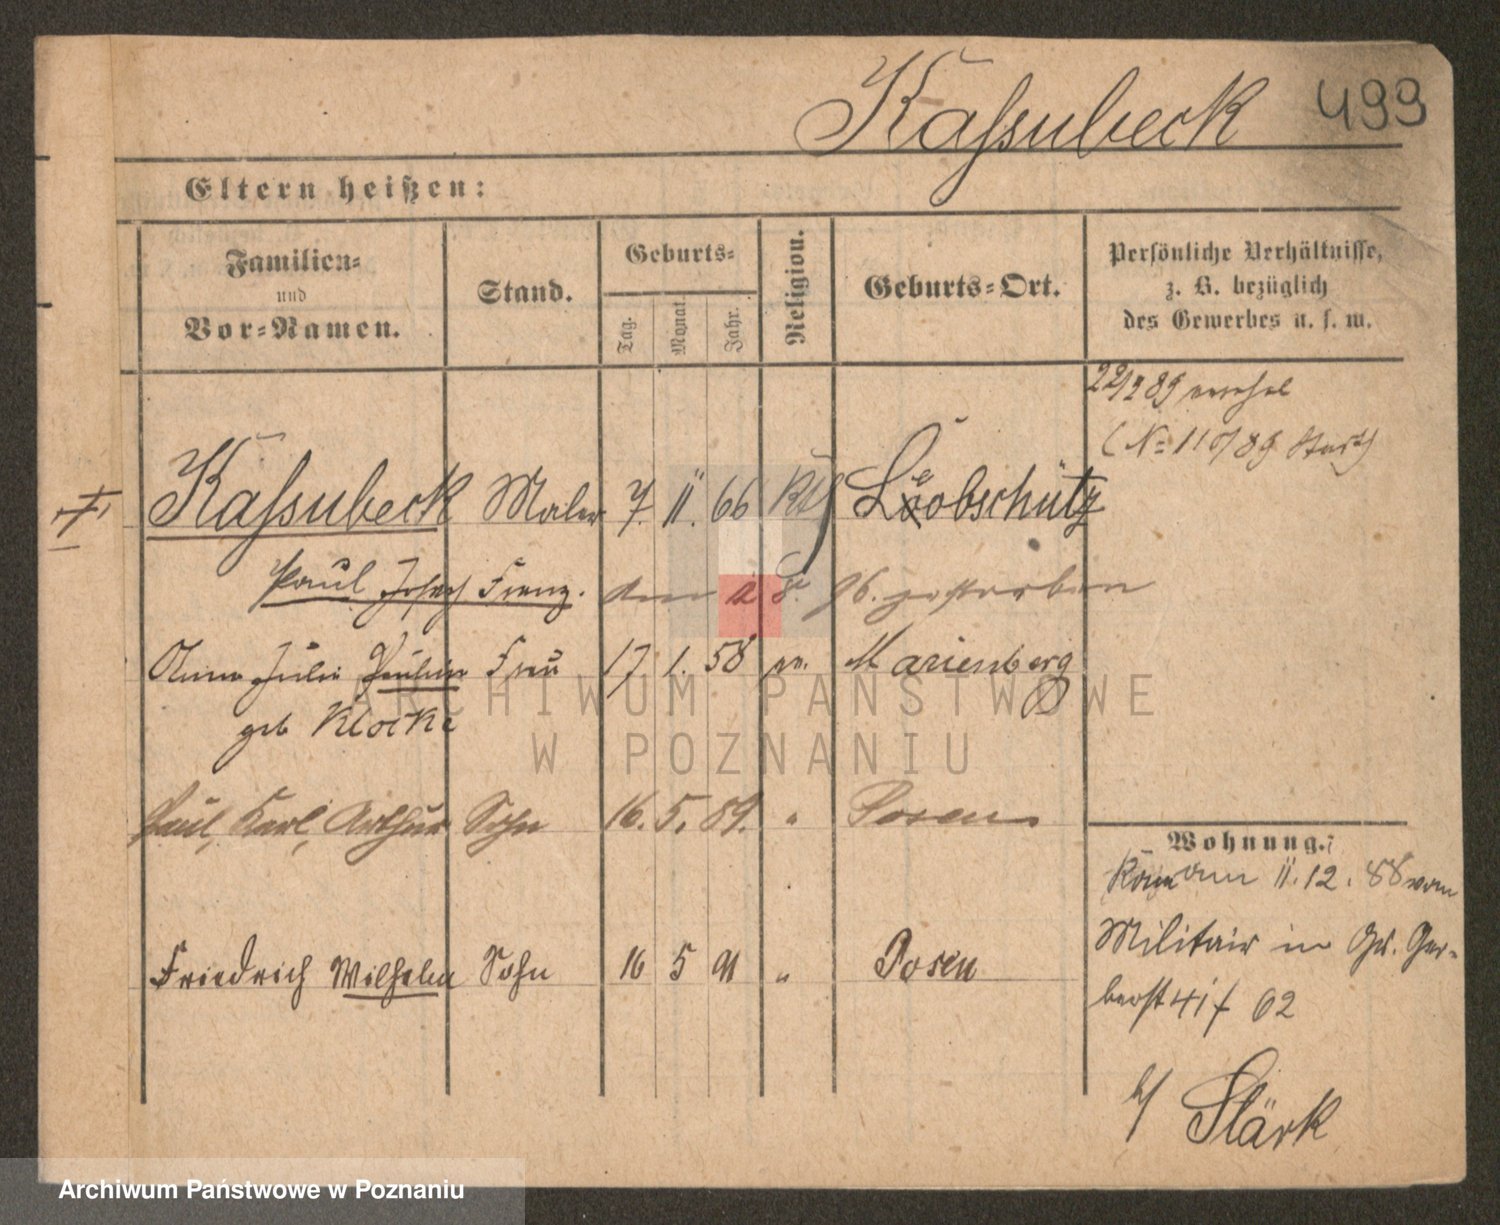 Kaſsubeck 499
Eltern heißen:
Familien=
und
Vor=Namen.
Stand.
Geburts=
Tag.
Monat.
Jahr.
Religion.
Geburts=Ort.
Persönliche Verhältnisse,
z. B. bezüglich
des Gewerbes u. s. w.
22/2 89
(No 110/89 )
Kaſsubeck Maler 7. 11. 66 kth Leobschütz
Paul Josef Franz. den 8. 96. gestorben
Anna Julie Paulin Frau 17 1. 58 ev. Marienberg
geb Klocke
Paul, Karl, Arthur Sohn 16. 5. 89. " Posen
Friedrich Wilhelm Sohn 16 5 91 " Posen
Wohnung.
am 11. 12. 88 vom
Militair in Gr. Ger-
berst 41 62
b/ Stärk
ARCHIWUM PAŃSTWOWE
W POZNANIU
Archiwum Państwowe w Poznaniu